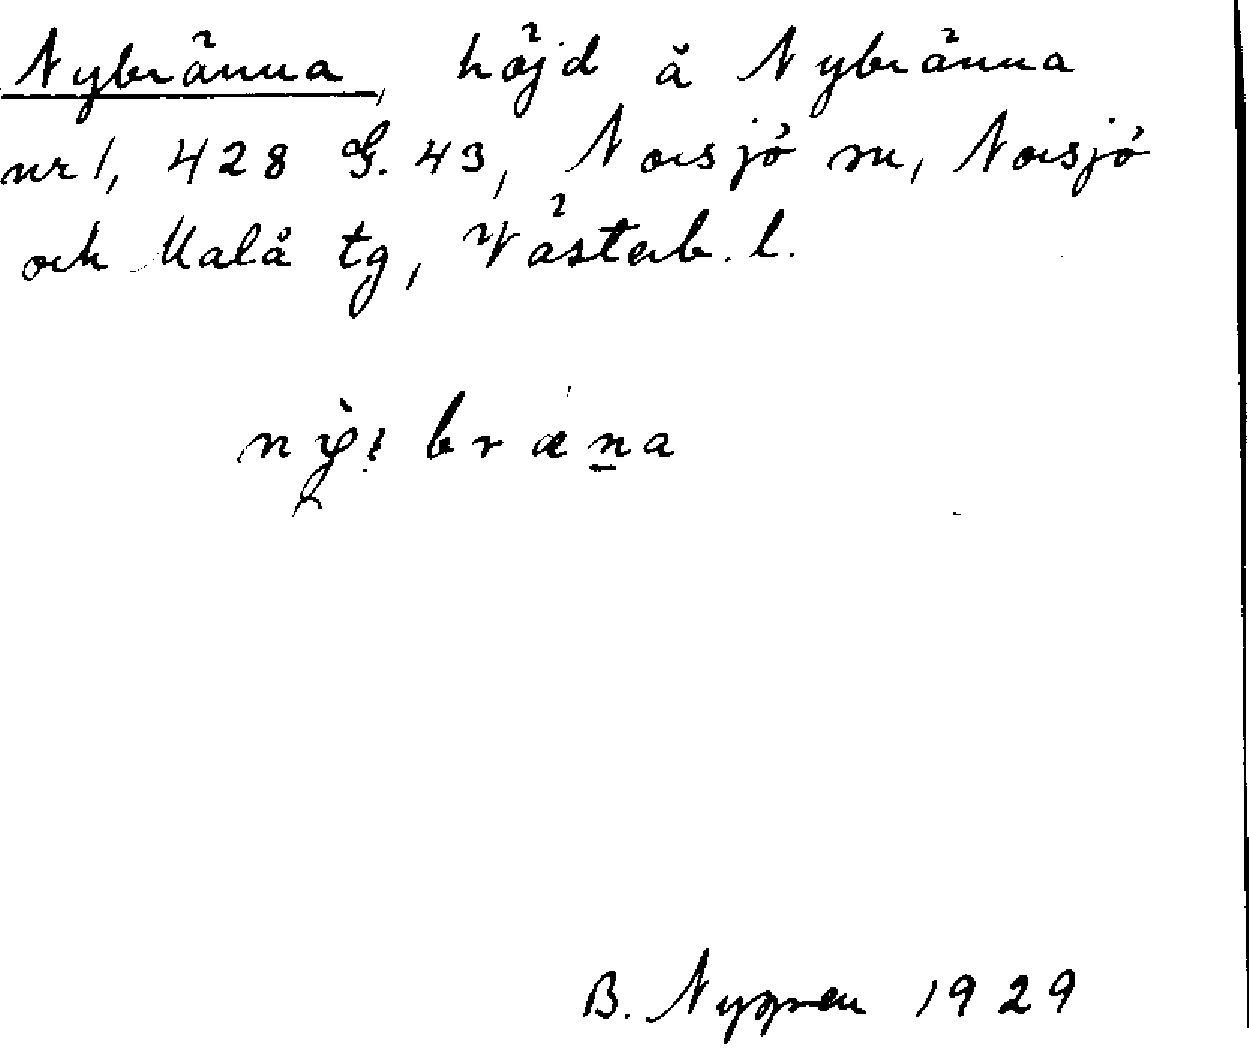 Nybränna, höjd å Nybränna
nr 1, 428 G. 43, Norsjö sn, Norsjö
och Malå tg, Västerb. l.
nỳ: bræṉa
B. Nygren 1929